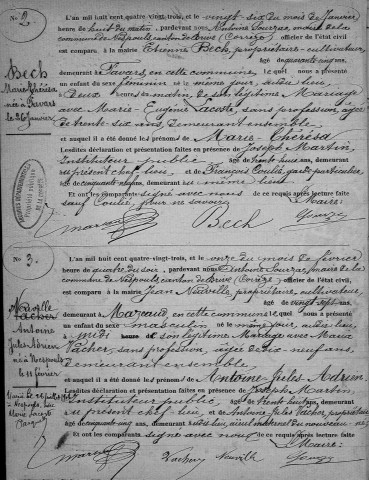 No 2
Bech
Marie Thérèsa
née à Favars
le 26 Janvier
L'an mil huit cent quatre-vingt-trois, et le vingt six du mois de Janvier
heure de huit du matin, pardevant nous Antoine Sourzac, maire de la
commune de Nespouls canton de Brive (Corrèze) officier de l'état civil
est comparu à la mairie Etienne Bech, propriétaire-cultivateur,
âgé de quarante cinq ans,
demeurant à Favars en cette commune, lequel nous a présenté
un enfant du sexe féminin né le même jour, audit lieu,
à deux heures du matin, de son légitime Mariage
avec Marie-Eugénie Lacoste, sans profession, âgée
de trente-six ans, demeurant ensemble
et auquel il a été donné les prénoms de Marie-Thérèsa
Lesdites déclaration et présentation faites en présence de Joseph Martin,
Instituteur public, âgé de trente huit ans, demeurant
au présent chef-lieu, et de François Coulié, garde particulier
âgé de cinquante ans, demeurant au même lieu
Et ont les comparants signé avec nous de ce requis après lecture faite
sauf Coulié, pour ne savoir.
Maire:
Martin
Bech
No 3.
Neuville
Antoine
Jules Adrien
né à Nespouls
le 11 février
L'an mil huit cent quatre-vingt-trois, et le onze du mois de février
heure de quatre du soir, pardevant nous Antoine Sourzac, maire de la
commune de Nespouls canton de Brive (Corrèze) officier de l'état civil
est comparu à la mairie Jean Neuville, propriétaire, cultivateur,
âgé de vingt sept ans,
demeurant à Mazaud, en cette commune, lequel nous a présenté
un enfant du sexe masculin né le même jour, audit lieu,
à midi de son légitime Mariage avec Maria
Vacher, sans profession, âgée de dix-neuf ans,
demeurant ensemble
et auquel il a été donné les prénoms de Antoine-Jules-Adrien
Lesdites déclaration et présentation faites en présence de Joseph Martin
Instituteur public, âgé de trente huit ans, demeurant
au présent chef-lieu, et de Antoine Jules Vacher, propriétaire
Et ont les comparants signé avec nous de ce requis après lecture faite
Maire:
Martin
Vacher Neuville